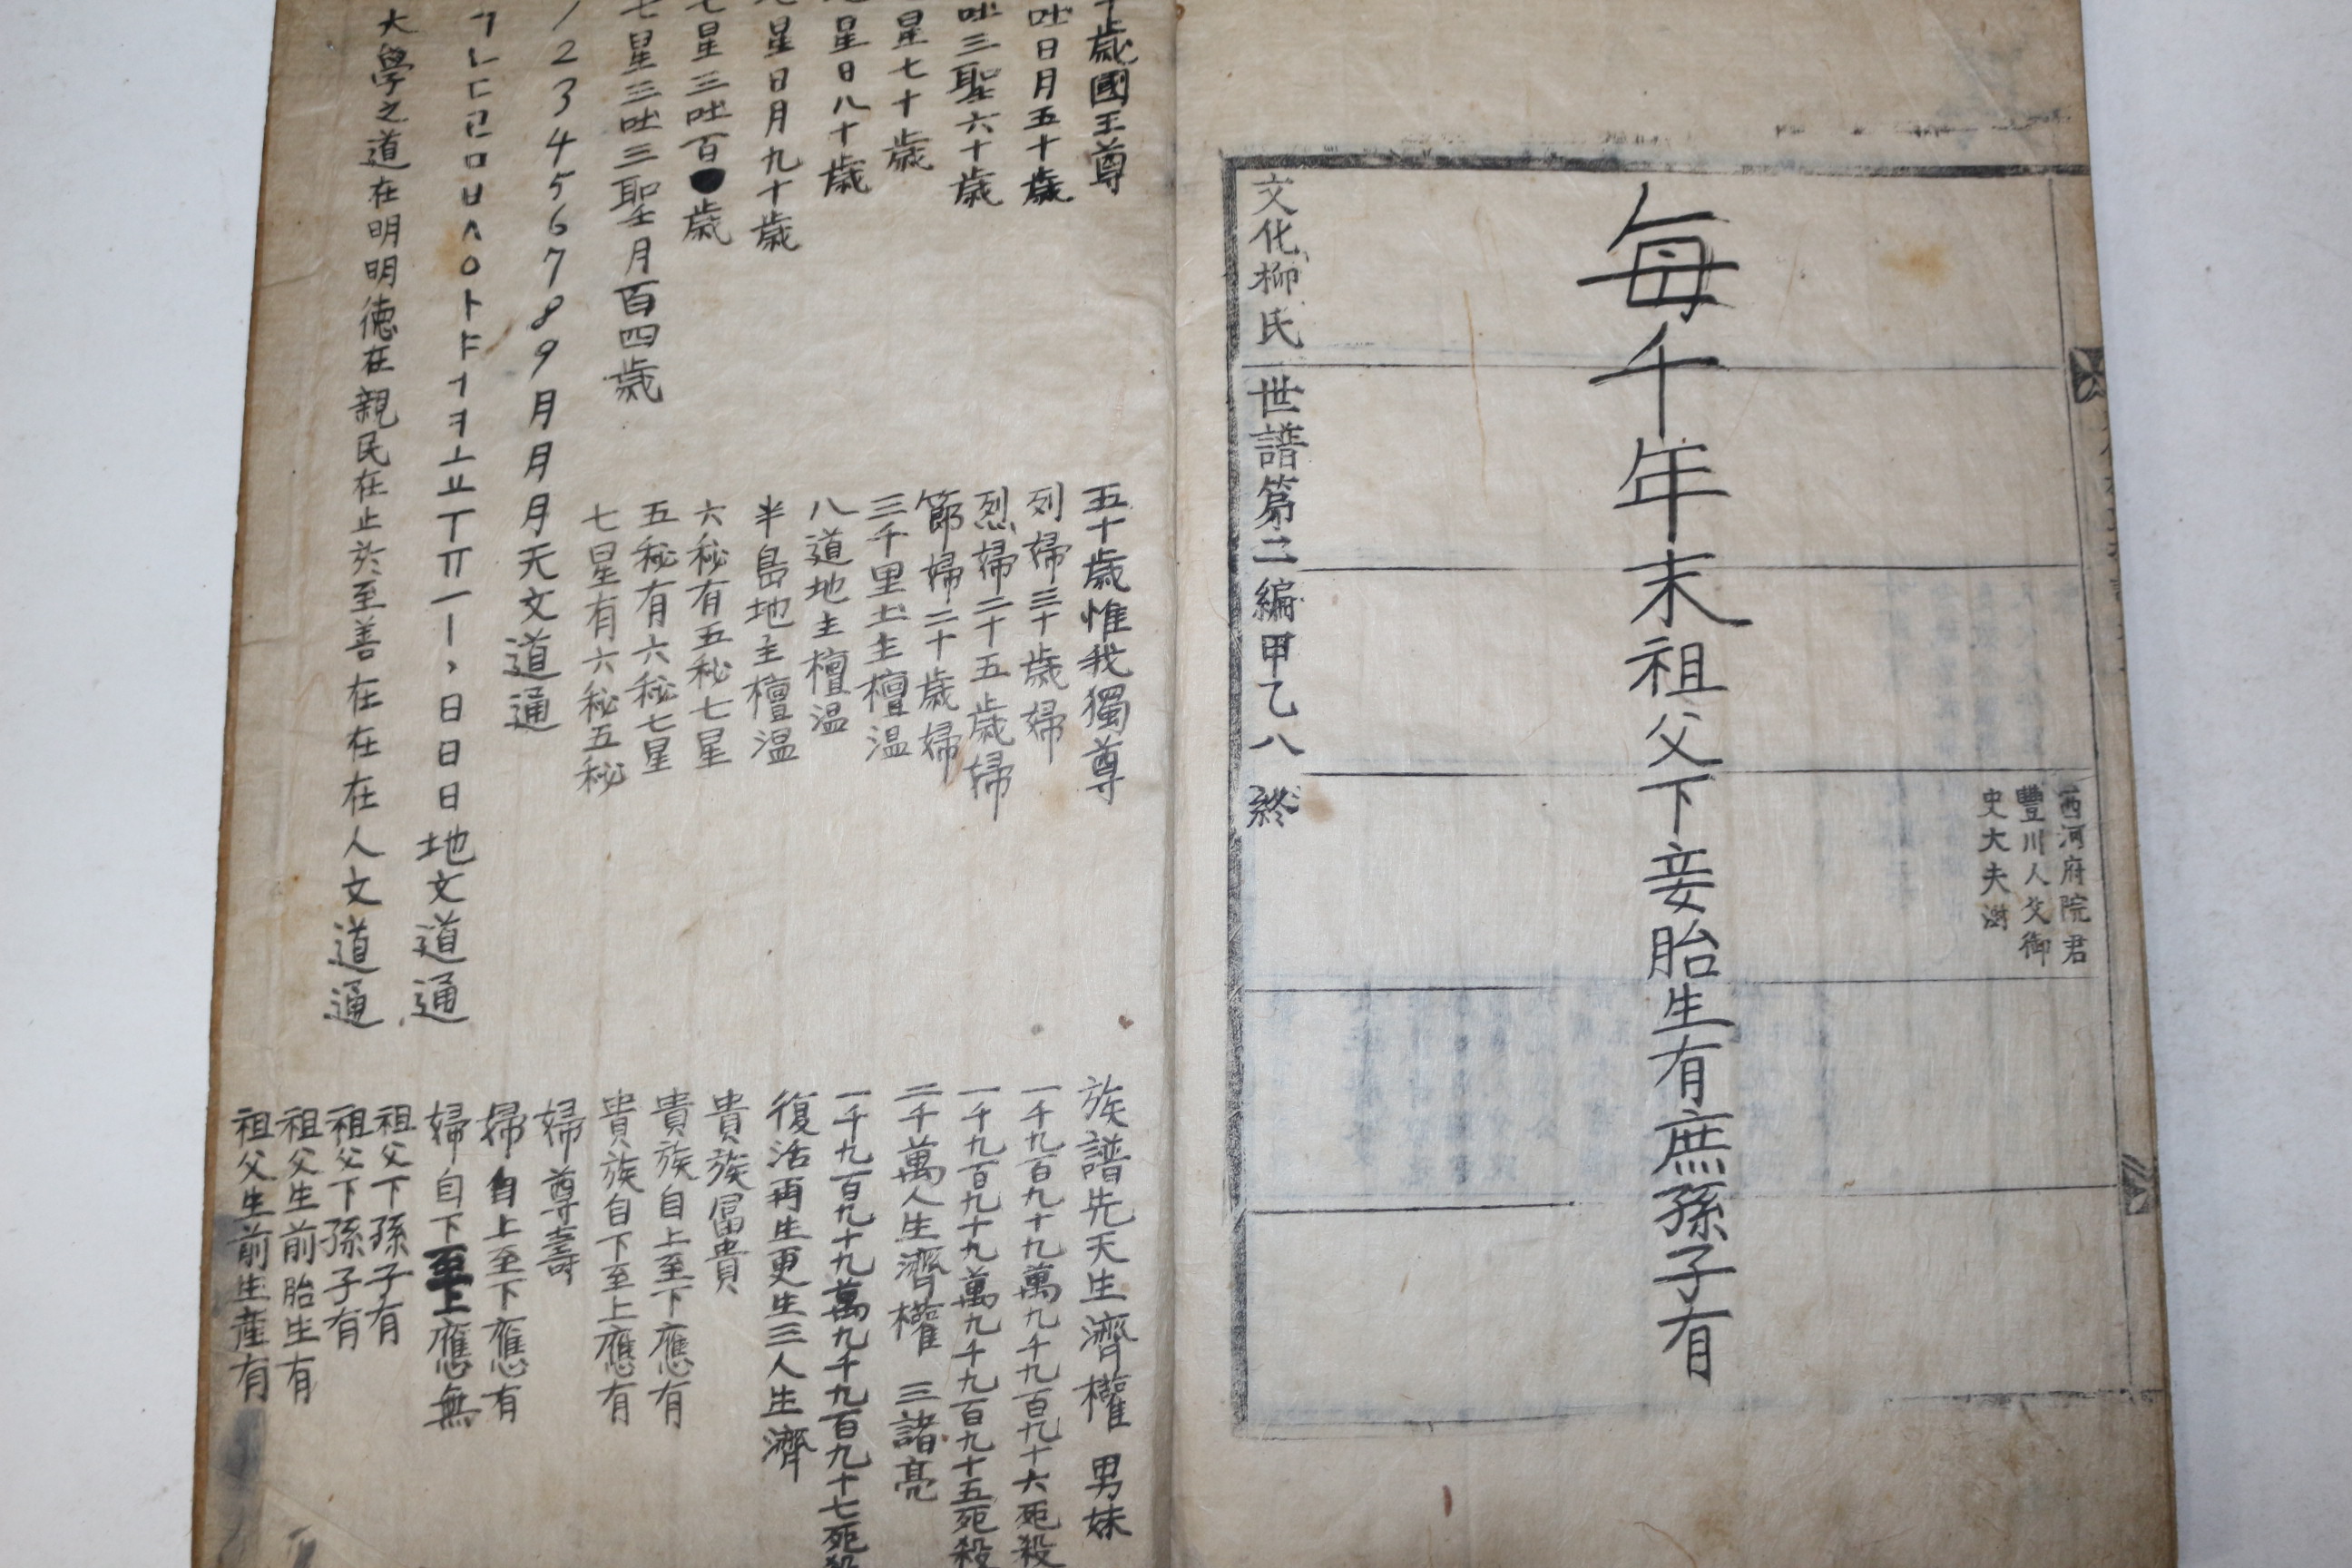 西河府院君
豐川人父御
史大夫澍
每千年末祖父下妾胎生有庶孫子有
文化柳氏 世譜第二編甲乙八 終
歲國王尊
吐日月五十歲
吐三聖六十歲
星七十歲
星日八十歲
星日月九十歲
七星三吐百歲
七星三吐三聖月百四歲
1 2 3 4 5 6 7 8 9 月月月天文道通
ㄱㄴㄷㄹㅁㅂㅅㅇㅏㅑㅓㅕㅗㅛㅜㅠㅡㅣ、日日日地文道通
大學之道在明明德在親民在止於至善在在在人文道通
五十歲惟我獨尊
列婦三十歲婦
烈婦二十五歲婦
節婦二十歲婦
三千里土主檀温
八道地主檀温
半島地主檀温
六秘有五秘七星
五秘有六秘七星
七星有六秘五秘
族譜先天生濟權 男妹
一千九百九十九萬九千九百九十六死殺
一千九百九十九萬九千九百九十五死殺
二千萬人生濟權 三諸亮
一千九百九十九萬九千九百九十七死殺
復活再生更生三人生濟
貴族冨貴
貴族自上至下應有
貴族自下至上應有
婦尊壽
婦自上至下應有
婦自下至上應無
祖父下孫子有
祖父下孫子有
祖父生前胎生有
祖父生前生産有